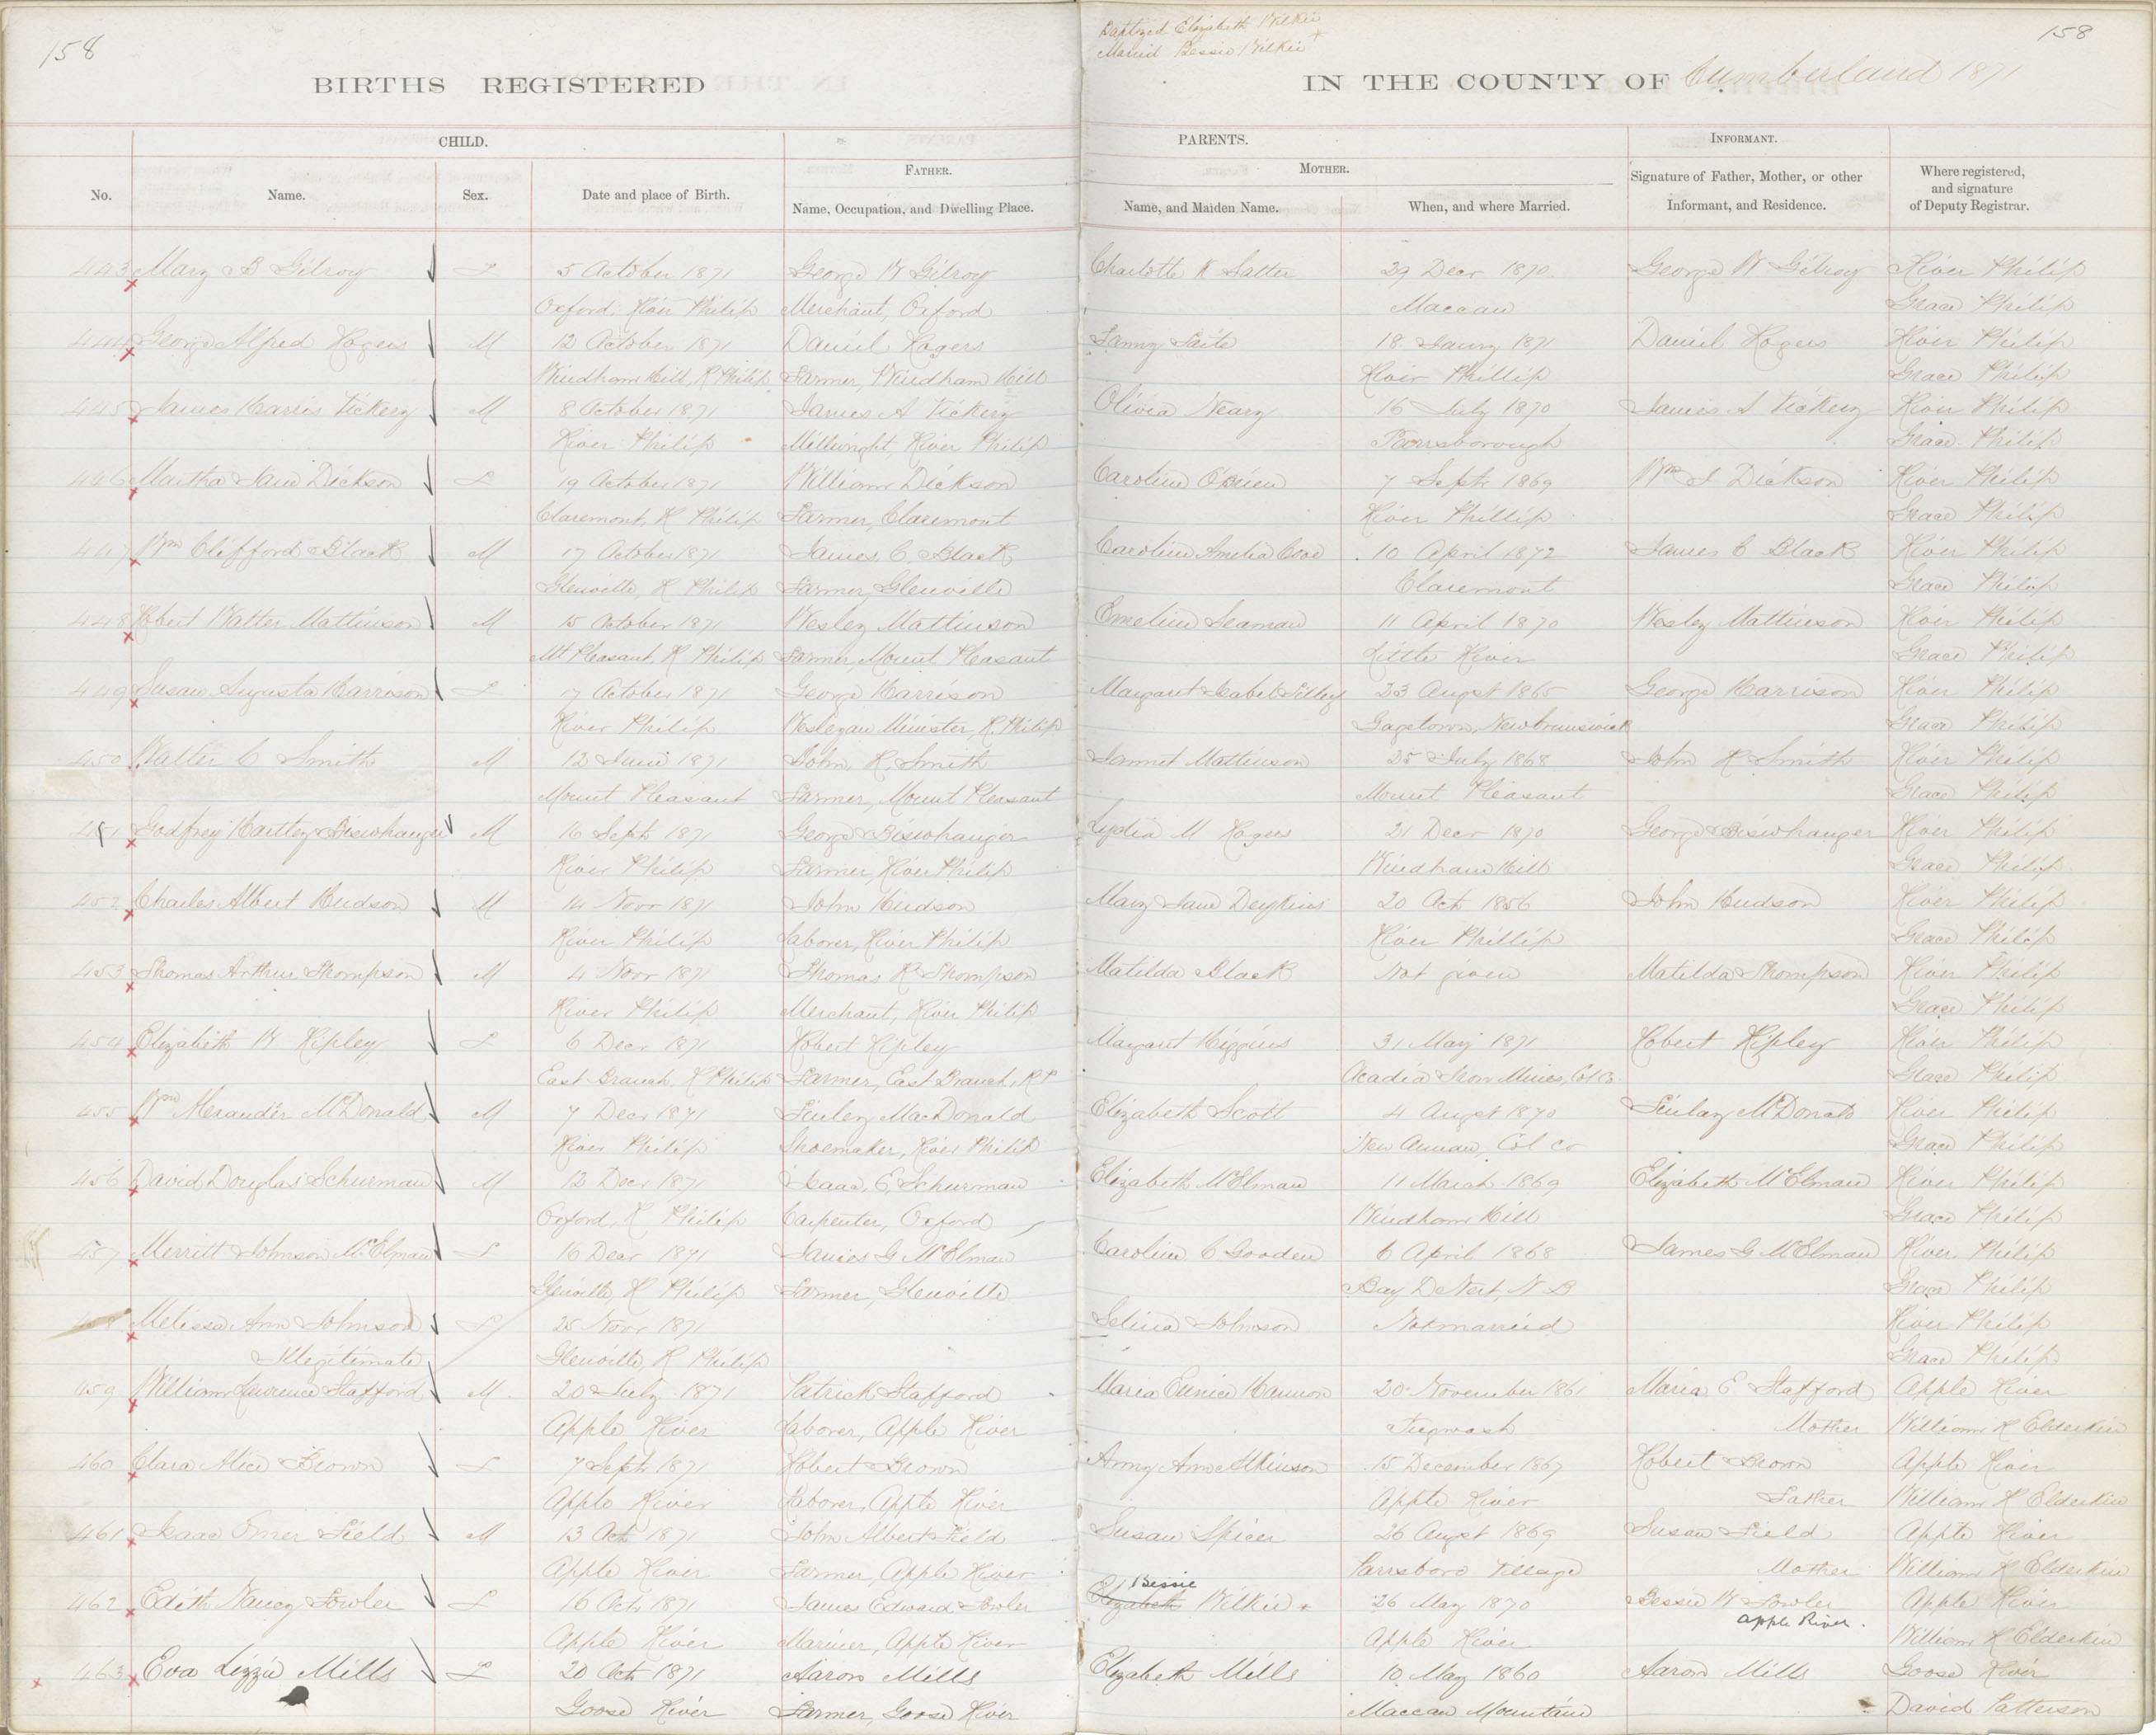 158
Baptized Elizabeth Wilkie
Married Bessie Wilkie
158
BIRTHS REGISTERED
IN THE COUNTY OF Cumberland 1871
CHILD.
PARENTS.
INFORMANT.
No.
Name.
Sex.
Date and place of Birth.
FATHER.
Name, Occupation, and Dwelling Place.
MOTHER.
Name, and Maiden Name.
When, and where Married.
Signature of Father, Mother, or other
Informant, and Residence.
Where registered,
and signature
of Deputy Registrar.
443 Mary B Gilroy F 5 October 1871 George W Gilroy Charlotte Salter 29 Decr 1870 George W Gilroy River Philip
Oxford, River Philip Merchant, Oxford Maccan Grace Philip
444 George Alfred Rogers M 12 October 1871 Daniel Rogers Fanny 18 Jany 1871 Daniel Rogers River Philip
Windham Hill, R Philip Farmer, Windham Hill River Phillip Grace Philip
445 James Harris Vickery M 8 October 1871 James A Vickery Olivia Neary 16 July 1870 James A Vickery River Philip
River Philip Millwright, River Philip Parrsborough Grace Philip
446 Martha Jane Dickson F 19 October 1871 William Dickson Caroline O'Brien 7 Septr 1869 Wm Dickson River Philip
Claremont, R Philip Farmer, Claremont River Phillip Grace Philip
447 Wm Clifford Black M 17 October 1871 James C. Black Caroline Amelia 10 April 1872 James C Black River Philip
Glenville, R Philip Farmer, Glenville Claremont Grace Philip
448 Robert Walter Mattinson M 15 October 1871 Wesley Mattinson Emeline Seaman 11 April 1870 Wesley Mattinson River Philip
Mt Pleasant, R Philip Farmer, Mount Pleasant Little River Grace Philip
449 Susan Augusta Harrison F 17 October 1871 George Harrison Margaret Isabel 23 Augst 1865 George Harrison River Philip
River Philip Wesleyan Minister, R. Philip Gagetown, New brunswick Grace Philip
450 Walter C Smith M 12 June 1871 John R Smith Mattinson 25 July 1868 John R Smith River Philip
Mount Pleasant Farmer, Mount Pleasant Mount Pleasant Grace Philip
451 Godfrey Hartley M 16 Septr 1871 George Lydia M Rogers 21 Decr 1870 George River Philip
River Philip Farmer, River Philip Windham Hill Grace Philip
452 Charles Albert Hudson M 14 Novr 1871 John Hudson Mary Jane 20 Oct 1856 John Hudson River Philip
River Philip Laborer, River Philip River Phillip Grace Philip
453 Thomas Arthur Thompson M 4 Novr 1871 Thomas R Thompson Matilda Black Not given Matilda Thompson River Philip
River Philip Merchant, River Philip Grace Philip
454 Elizabeth W Ripley F 6 Decr 1871 Robert Ripley Margaret Higgins 31 May 1871 Robert Ripley River Philip
East Branch, R Philip Farmer, East Branch, R P Acadia Iron Mines, Col Co Grace Philip
455 Wm Alexander McDonald M 7 Decr 1871 Finley MacDonald Elizabeth Scott 4 Augst 1870 Finlay McDonald River Philip
River Philip Shoemaker, River Philip New Annan, Col Co Grace Philip
456 David Douglas Schurman M 12 Decr 1871 Isaac E. Schurman Elizabeth McElman 11 March 1869 Elizabeth McElman River Philip
Oxford, R Philip Carpenter, Oxford Windham Hill Grace Philip
457 Merritt Johnson McElman F 16 Decr 1871 James G McElman Caroline C Gooden 6 April 1868 James G McElman River Philip
Glenville, R Philip Farmer, Glenville Bay De Vert, N B Grace Philip
458 Melissa Ann Johnson F 25 Novr 1871 Selina Johnson Not married River Philip
Illegitimate Glenville, R Philip Grace Philip
459 William Lawrence Stafford M 20 July 1871 Patrick Stafford Maria Eunice Hannon 20 November 1861 Maria E Stafford Apple River
Apple River Laborer, Apple River Pugwash Mother William R Elderkin
460 Clara Alice Brown F 7 Septr 1871 Robert Brown Ann Atkinson 15 December 1867 Robert Brown Apple River
Apple River Laborer, Apple River Apple River Father William R Elderkin
461 Isaac Field M 13 Oct 1871 John Albert Field Susan Spicer 26 Augst 1869 Susan Field Apple River
Apple River Farmer, Apple River Parrsboro Village Mother William R Elderkin
Bessie
462 Edith Nancy Fowler F 16 Octr 1871 James Edward Fowler Elizabeth Wilkie + 26 May 1870 Bessie W Fowler Apple River
Apple River.
Apple River Mariner, Apple River Apple River William R Elderkin
463 Eva Lizzie Mills F 20 Octr 1871 Aaron Mills Elizabeth Mills 10 May 1860 Aaron Mills Goose River
Goose River Farmer, Goose River Maccan Mountain David Patterson